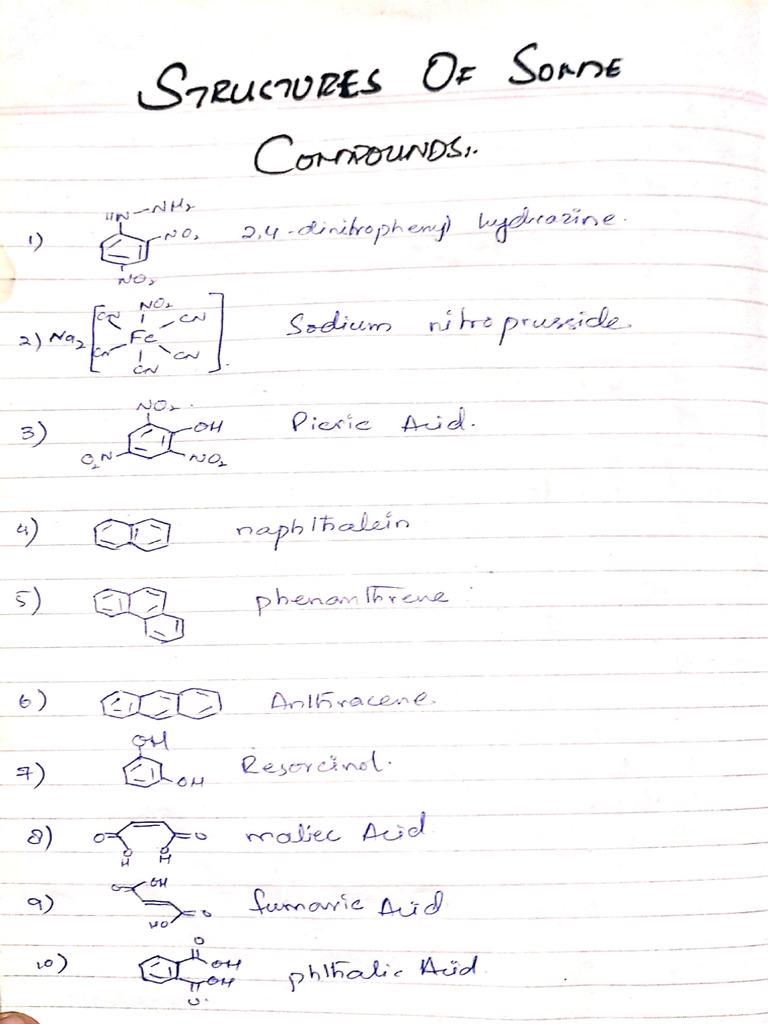 STRUCTURES OF SOME
COMPOUNDS:.
1) HN-NH2 NO2 NO2 2,4-dinitrophenyl hydrazine.
2) Na2 [Fe NO2 CN CN CN CN CN]. Sodium nitroprusside.
3) NO2 OH O2N NO2 Picric Acid.
4) naphthalein
5) phenanthrene
6) Anthracene.
7) OH OH Resorcinol.
8) O O OH OH maliec Acid
9) O OH HO O fumaric Acid
10) O OH OH O phthalic Acid.